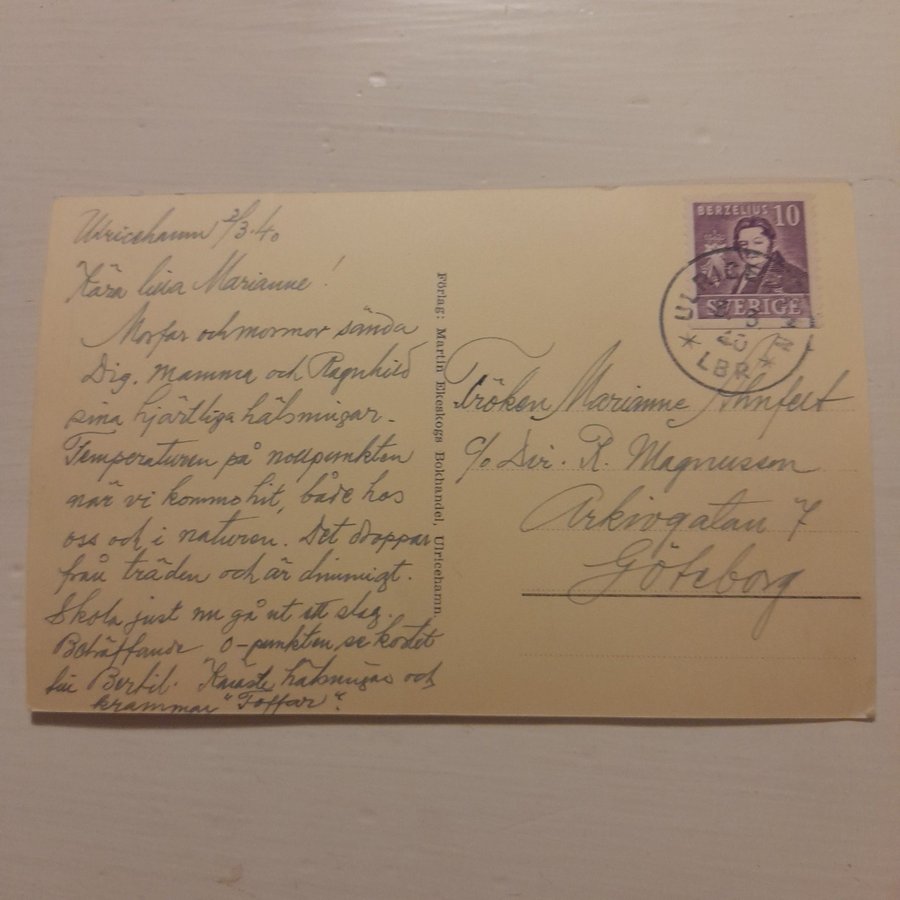 Ulricehamn 2/3.40
Kära lilla Marianne!
Morfar och mormor sända
Dig, mamma och Ragnhild
sina hjärtliga hälsningar.
Temperaturen på nollpunkten
när vi kommo hit, både hos
oss och i naturen. Det droppar
från träden och är dimmigt.
Skola just nu gå ut ett slag.
Beträffande 0-punkten, se kortet
till Bertil. Käraste hälsningar och
kramar "Foffar".
Förlag: Martin Ekeskogs Bokhandel, Ulricehamn
BERZELIUS 10
SVERIGE
ULRICEHAMN
2 3
40
* LBR *
Fröken Marianne Ahnfelt
c/o Dir. R. Magnusson
Arkivgatan 7
Göteborg